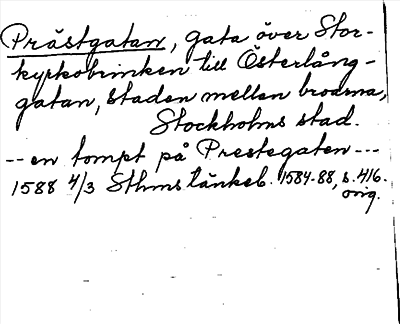 Prästgatan, gata över Stor-
kyrkobrinken till Österlång-
gatan, staden mellan broarna,
Stockholms stad.
-- en tompt på Prestegaten ---
1588 4/3 Sthms tänkeb. 1584-88, s. 416.
orig.